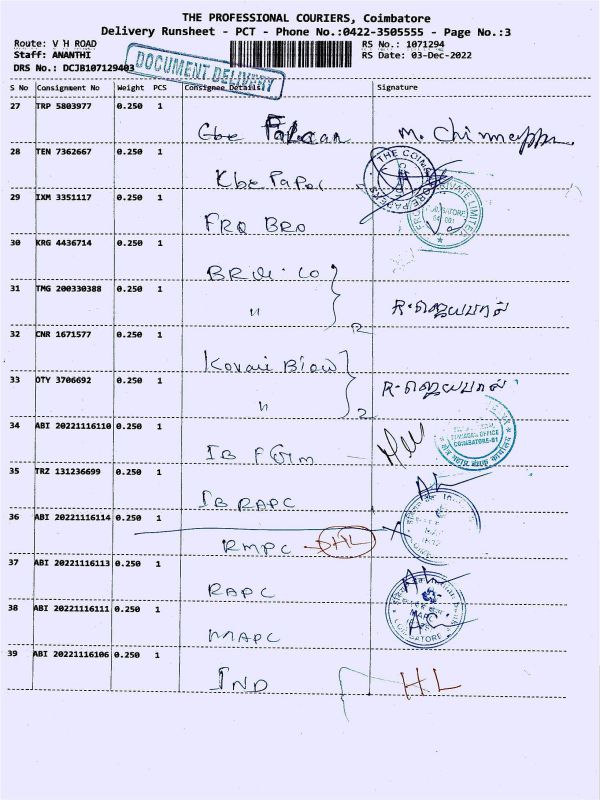 THE PROFESSIONAL COURIERS, Coimbatore
Delivery Runsheet - PCT - Phone No.:0422-3505555 - Page No.:3
Route: V H ROAD RS No.: 1071294
Staff: ANANTHI RS Date: 03-Dec-2022
DRS No.: DCJB107129403
DOCUMENT DELIVERY
S No Consignment No Weight PCS Consignee Details Signature
27 TRP 5803977 0.250 1
M. Chinnappa
28 TEN 7362667 0.250 1
Kbe Paper
29 IXM 3351117 0.250 1
FRQ BRO
30 KRG 4436714 0.250 1
31 TMG 200330388 0.250 1
" 2 R-ஜெயபால்
32 CNR 1671577 0.250 1
Kovai
33 OTY 3706692 0.250 1
" 2 R-ஜெயபால்
34 ABI 20221116110 0.250 1
COIMBATORE-01
35 TRZ 131236699 0.250 1
IB RAPC
36 ABI 20221116114 0.250 1
RMPC DHL
37 ABI 20221116113 0.250 1
RAPC
38 ABI 20221116111 0.250 1
MAPC
39 ABI 20221116106 0.250 1
IND HL